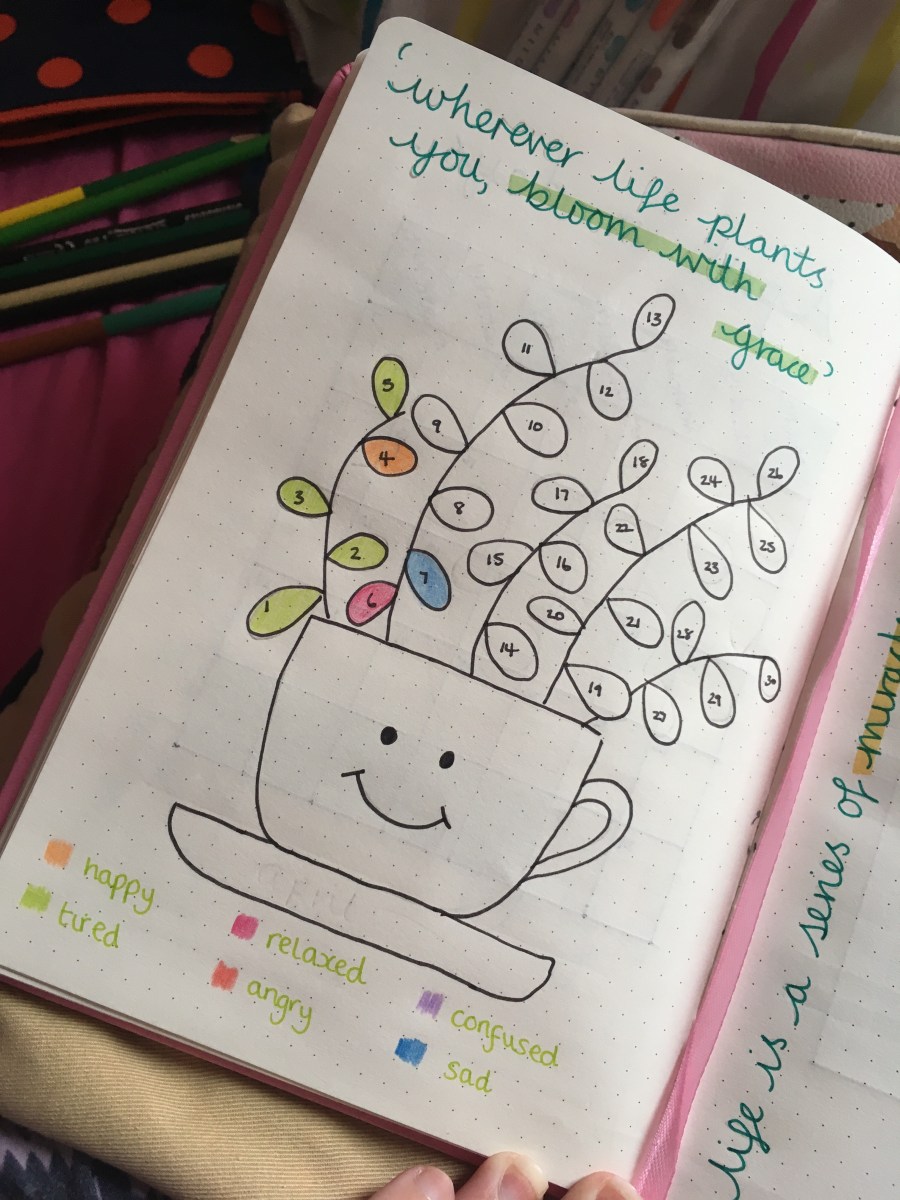 'wherever life plants
you, bloom with
grace'
13
11
12
5
9
10
4
18
24
26
3
17
8
22
25
2
15
16
23
7
1
6
20
21
28
14
19
29
30
27
happy
tired
relaxed
angry
confused
sad
life is a series of